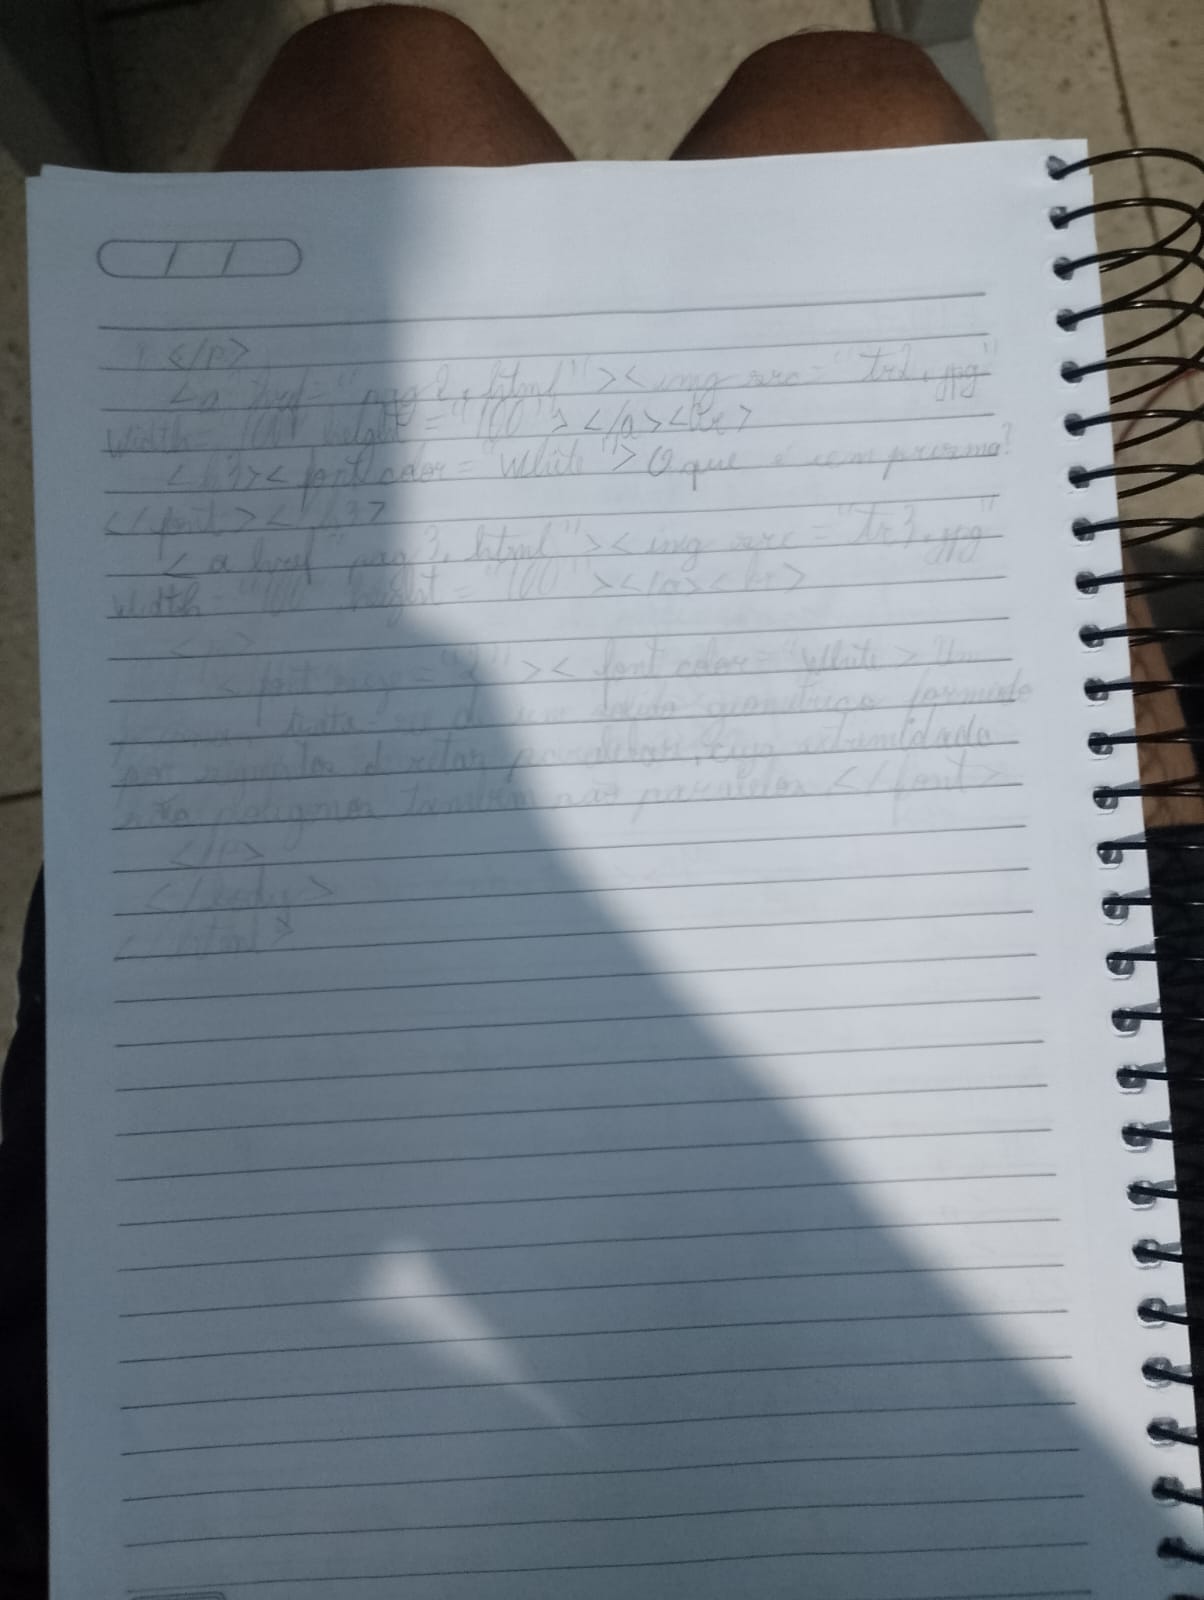 </p>
<a href="pag2.html"><img src="tr2.jpg"
Width="100" height="100"></a><br>
<h3><font color="White">O que é um prisma?
</font></h3>
<a href"pag3.html"><img src="tr3.jpg"
Width="100" height="100"></a><br>
<p>
<font size="><font color="White> Um
prisma trata-se de um sólido geométrico formado
por segmentos d retas paralelas, cujas extremidade
são poligonos não paralelos </font>
</p>
</body>
</html>